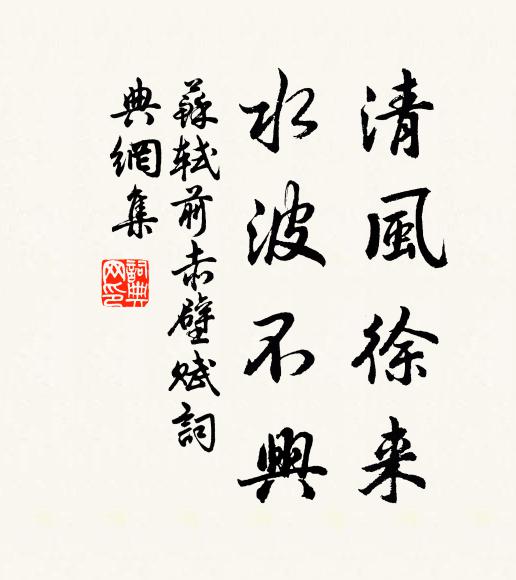 清風徐来
水波不興
蘇軾前赤壁賦詞
典網集
詞典
网印